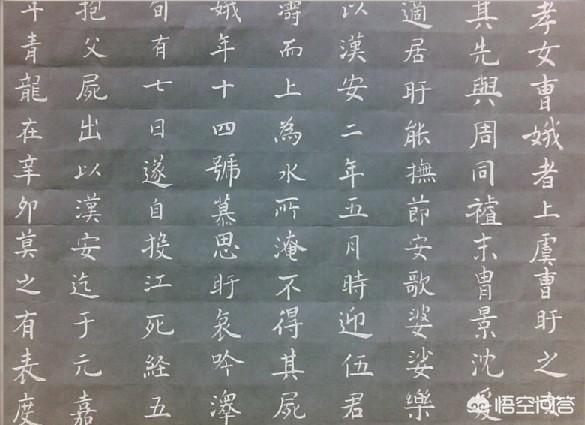 孝女曹娥者上虞曹盱之
其先與周同末胄景沈爰
適居盱能撫節安歌婆娑樂
以漢安二年五月時迎伍君
濤而上為水所淹不得其屍
娥年十四號慕思盱哀吟澤
旬有七日遂自投江死経五
抱父屍出以漢安迄于元嘉
青龍在辛卯莫之有表度
悟空问答